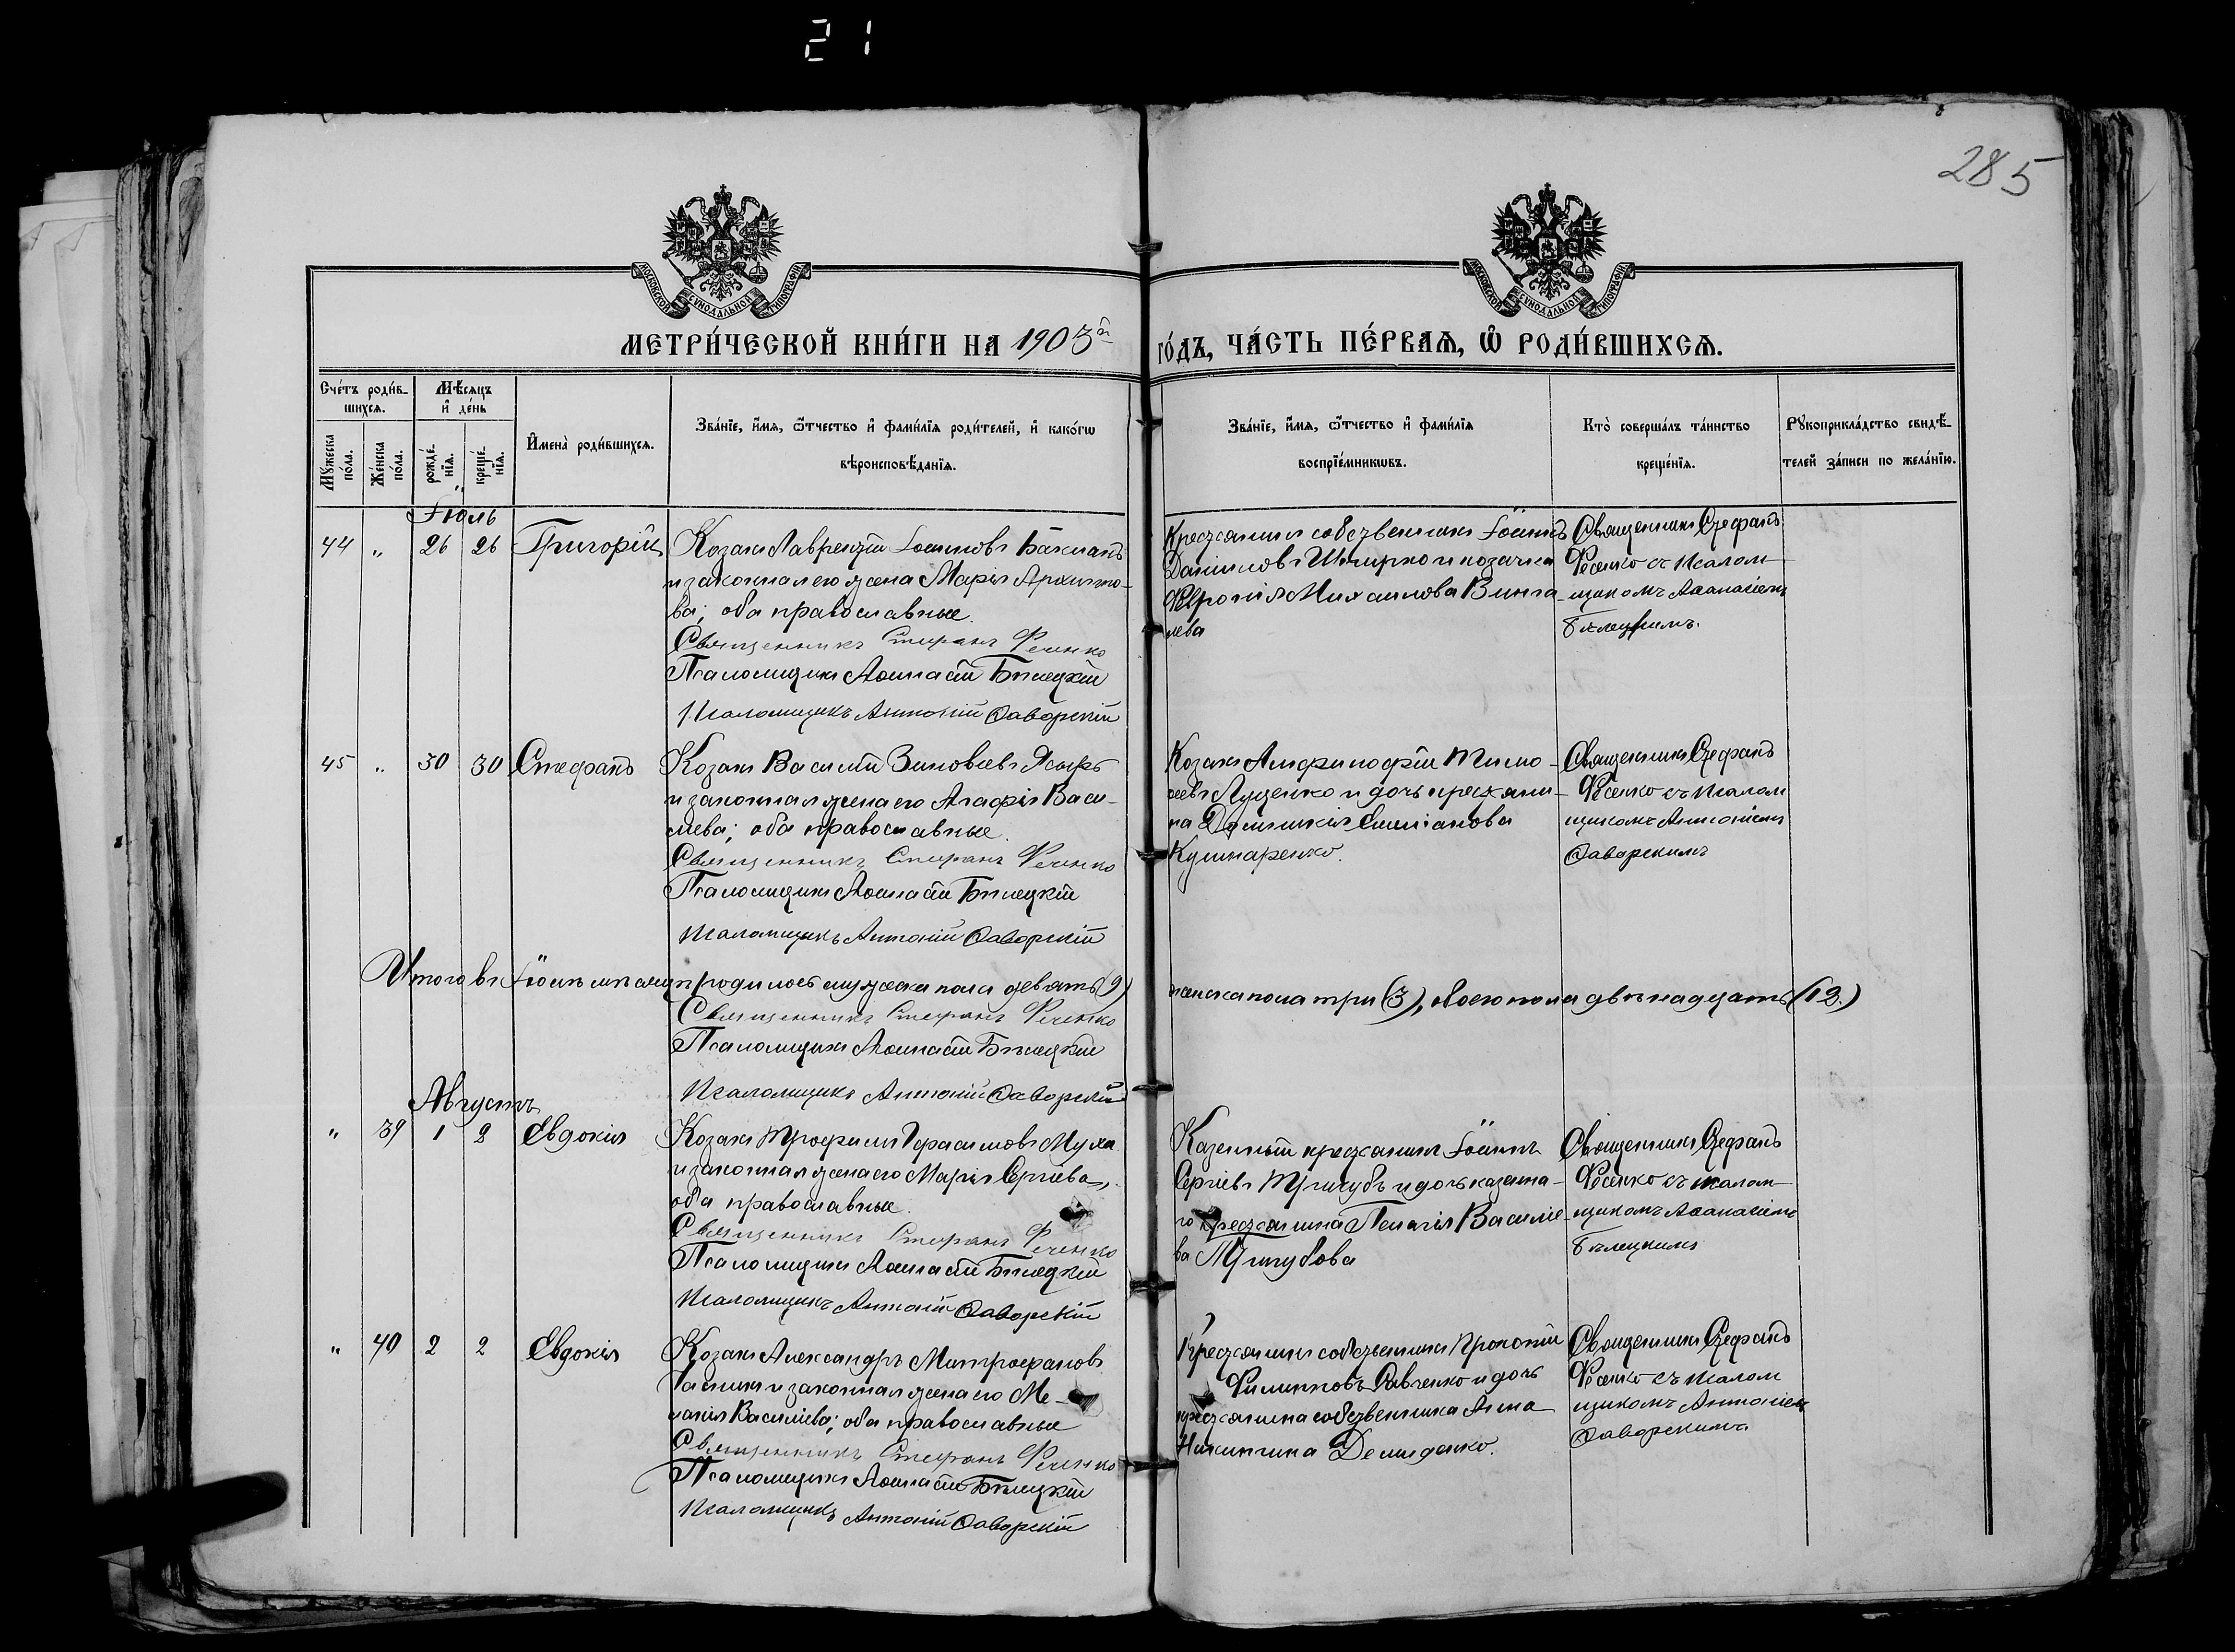 21
285
МОСКОВСКОЙ СѴНОДАЛЬНОЙ ТИПОГРАФІИ
МОСКОВСКОЙ СѴНОДАЛЬНОЙ ТИПОГРАФІИ
МЕТРИ́ЧЕСКОЙ КНИ́ГИ НА 1903й
ГО́ДЪ, ЧА́СТЬ ПЕ́РВАѦ, Ѡ҆ РОДИ́ВШИХСѦ.
Сче́тъ роди́в-
шихсѧ.
Мѣ́сяцъ
и҆ де́нь
Мꙋ́жеска
по́ла.
Же́нска
по́ла.
рожде́-
нїѧ.
креще́-
нїѧ.
И҆мена̀ роди́вшихсѧ.
Зва́нїе, и҆́мѧ, ѻ҆́тчество и҆ фами́лїѧ роди́телей, и҆ како́гѡ
вѣроисповѣ́данїѧ.
Зва́нїе, и҆́мѧ, ѻ҆́тчество и҆ фами́лїѧ
воспрїе́мникѡвъ.
Кто̀ соверша́лъ та́инство
креще́нїѧ.
Рꙋкоприкла́дство свидѣ́-
телей за́писи по жела́нїю.
Іюль
44 " 26 26 Григорій
Козакъ Лаврентій Іоанновъ Бакланъ
и законная его жена Марія Архипо-
ва; оба православные.
Священникъ Стефанъ Фесенко
Псаломщикъ Аѳанасій Бѣлецкій
Псаломщикъ Антоній Заворскій
Крестьянинъ собственникъ Іоаннъ
Даниловъ и козачка
Феѳронія Михаилова
лева
Священникъ Стефанъ
Фесенко съ псалом-
щикомъ Аѳанасіемъ
Бѣлецкимъ.
45 " 30 30 Стефанъ
Козакъ Василій Зиновіевъ
и законная жена его Агафія Васи-
лева; оба православные.
Священникъ Стефанъ Фесенко
Псаломщикъ Аѳанасій Бѣлецкій
Псаломщикъ Антоній Заворскій
Козакъ Тимо-
ѳеевъ Луценко и дочь крестьяни-
на Домникія Емиліанова
Кушнаренко.
Священникъ Стефанъ
Фесенко съ псалом
щикомъ Антоніемъ
Заворскимъ
Итого въ Іюлѣ мѣсяцѣ родилось мужеска пола девять (9)
женска пола три (3), обоего пола двѣнадцать (12.)
Священникъ Стефанъ Фесенко
Псаломщикъ Аѳанасій Бѣлецкій
Псаломщикъ Антоній Заворскій
Августъ
" 39 1 2 Евдокія
Козакъ Трофимъ Герасимовъ Муха
и законная жена его Марія Сергіева,
оба православные.
Священникъ Стефанъ Фесенко
Псаломщикъ Аѳанасій Бѣлецкій
Псаломщикъ Антоній Заворскій
Казенный крестьянинъ Іоаннъ
Сергіевъ Тригубъ и дочь казенна-
го крестьянина Пелагія Василіе-
ва Тригубова
Священникъ Стефанъ
Фесенко съ псалом-
щикомъ Аѳанасіемъ
Бѣлецкимъ
" 40 2 2 Евдокія
Козакъ Александръ Митрофановъ
и законная жена его Ме-
ланія Василіева; оба православные
Священникъ Стефанъ Фесенко
Псаломщикъ Аѳанасій Бѣлецкій
Псаломщикъ Антоній Заворскій
Крестьянинъ собственникъ Прокопій
Филипповъ Савченко и дочь
крестьянина собственника Анна
Никитина Демиденко.
Священникъ Стефанъ
Фесенко съ псалом
щикомъ Антоніемъ
Заворскимъ.